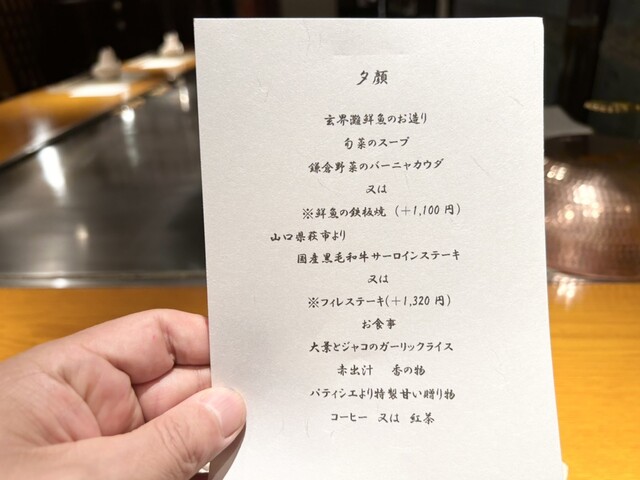 夕顔
玄界灘鮮魚のお造り
旬菜のスープ
鎌倉野菜のバーニャカウダ
又は
※鮮魚の鉄板焼（＋1,100 円）
山口県萩市より
国産黒毛和牛サーロインステーキ
又は
※フィレステーキ(＋1,320 円)
お食事
大葉とジャコのガーリックライス
赤出汁　香の物
パティシエより特製甘い贈り物
コーヒー 又は 紅茶